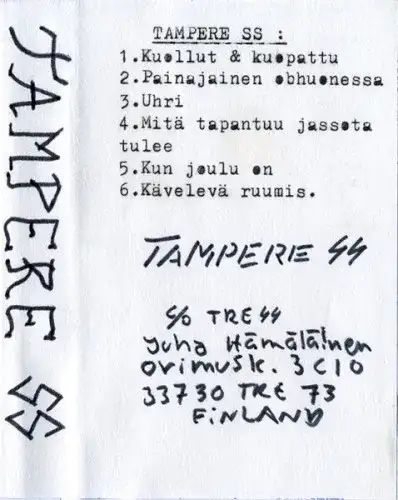 TAMPERE SS
TAMPERE SS :
1.Kuollut & kuopattu
2.Painajainen obhuonessa
3.Uhri
4.Mitä tapantuu jassota
tulee
5.Kun joulu on
6.Kävelevä ruumis.
TAMPERE SS
c/o TRE SS
Juha Hämäläinen
Orimusk. 3 C 10
33730 TRE 73
FINLAND